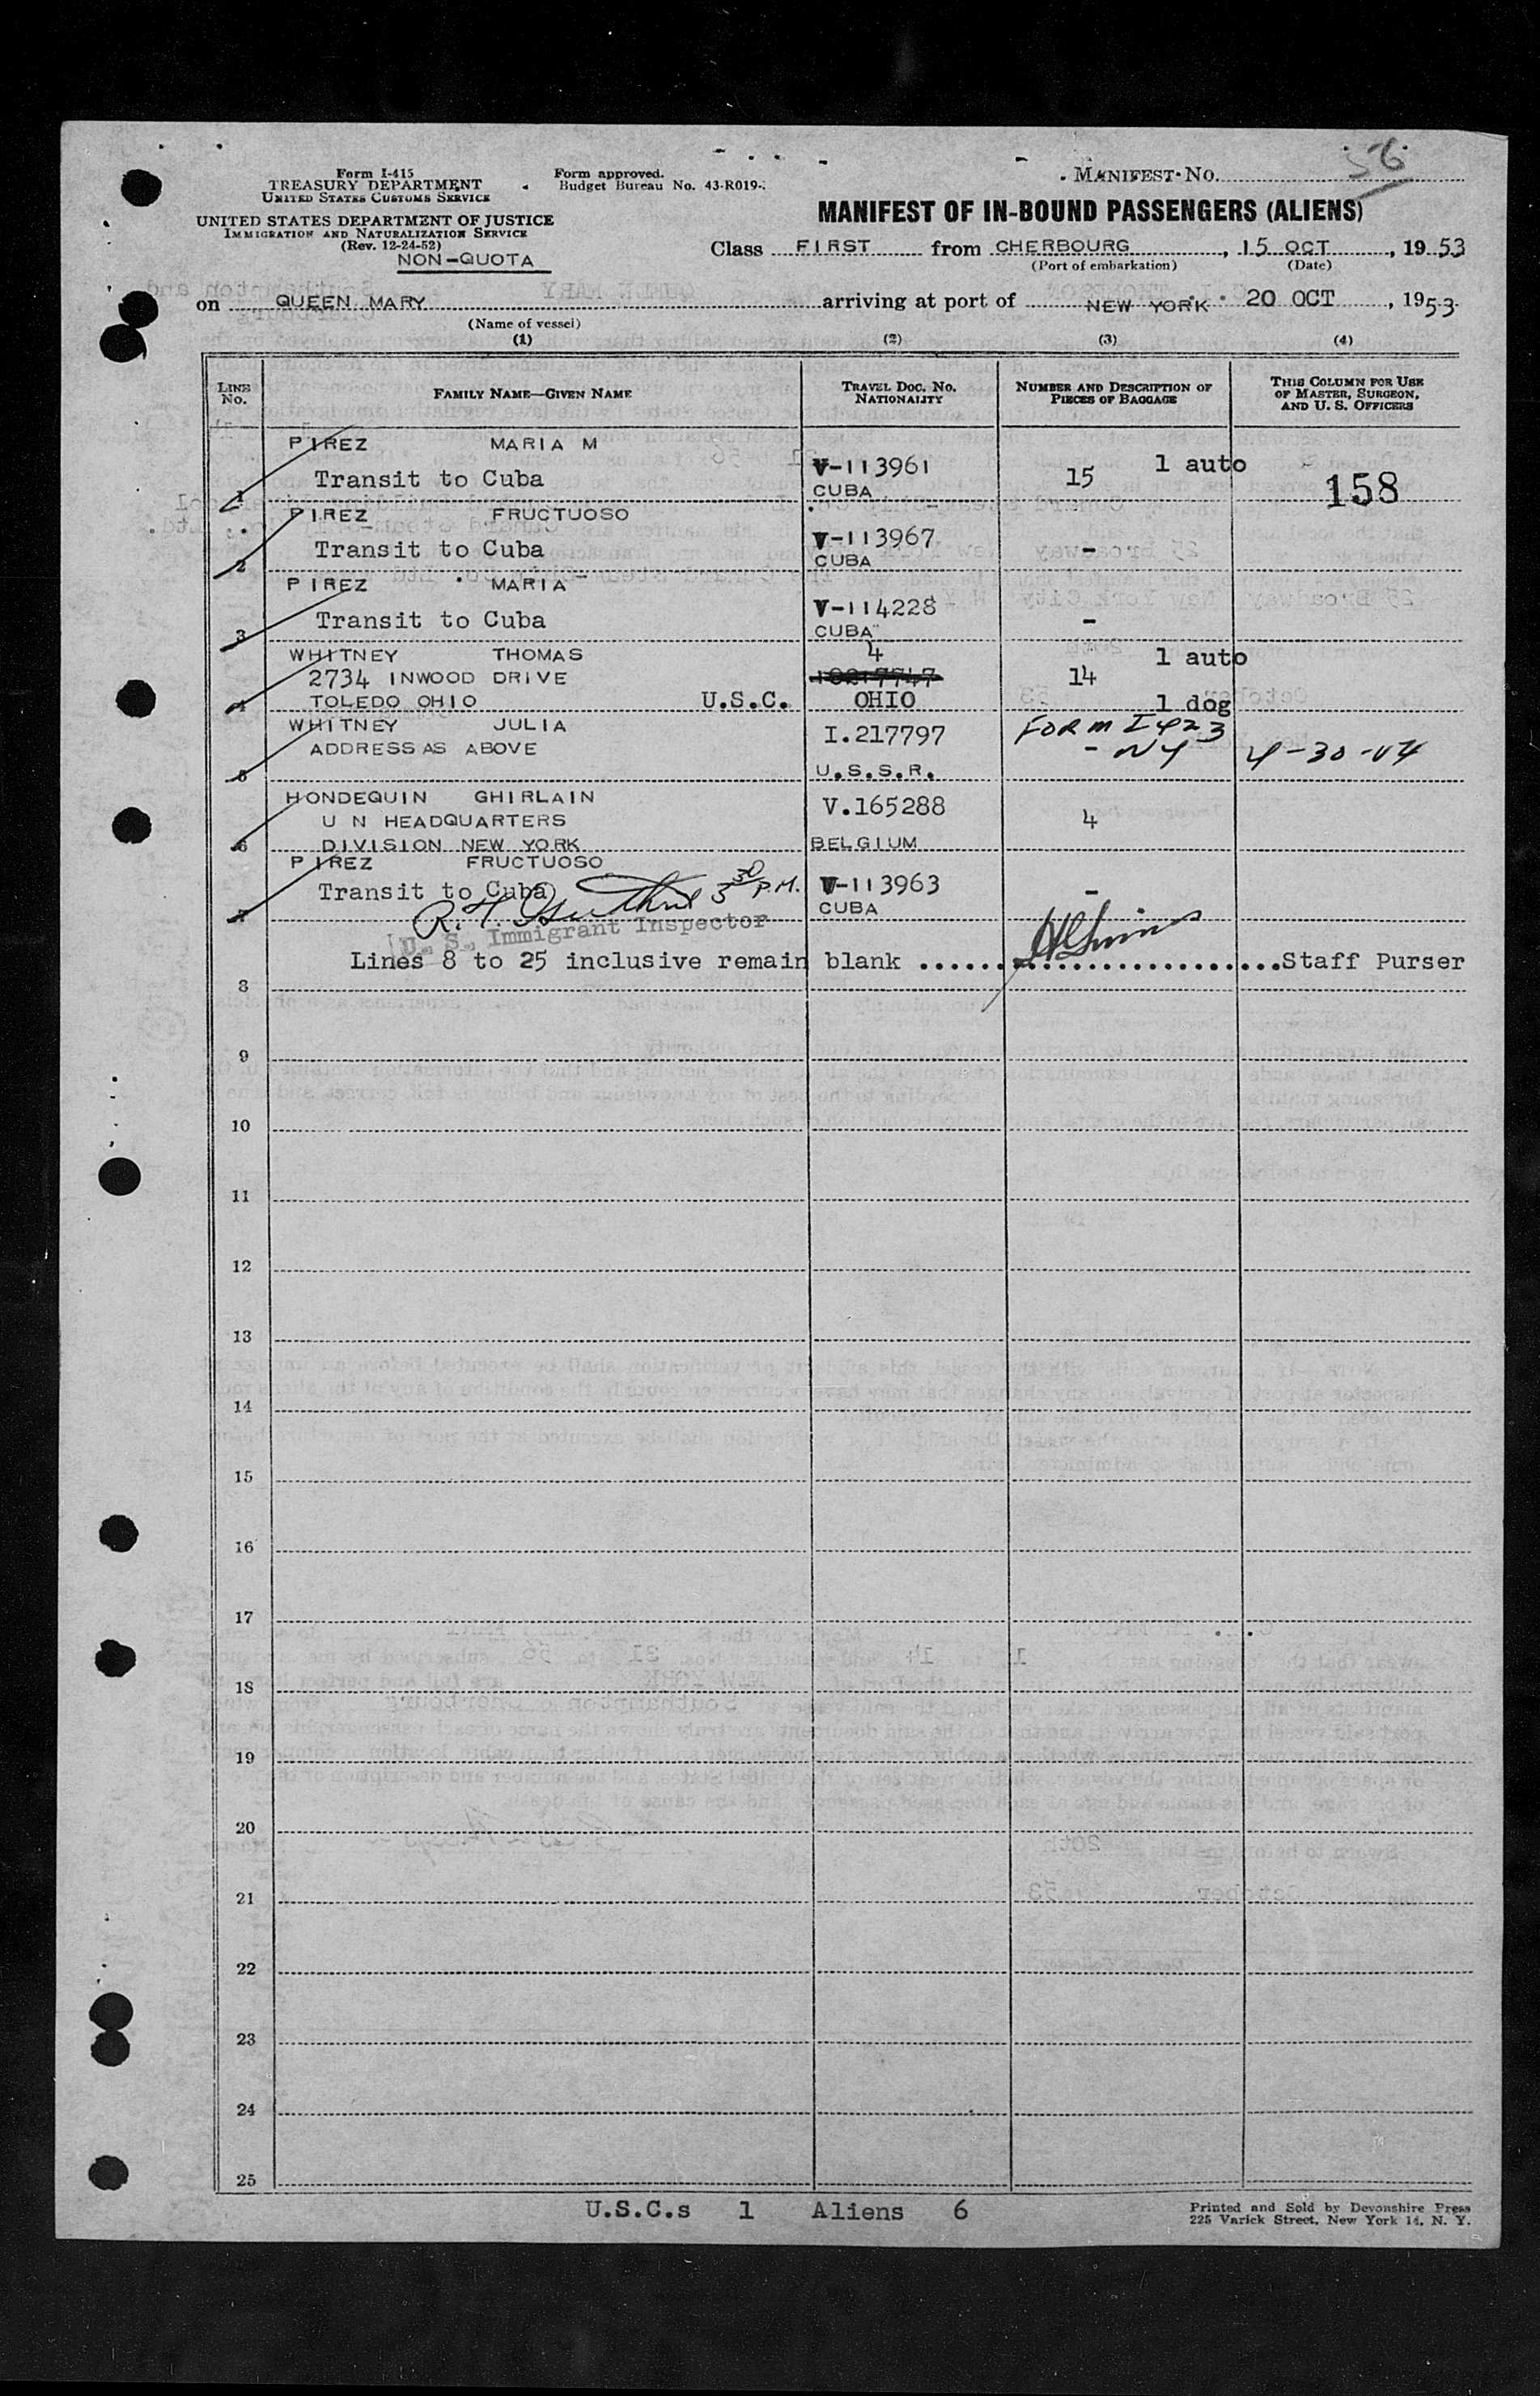 Form I-415
TREASURY DEPARTMENT
UNITED STATES CUSTOMS SERVICE
UNITED STATES DEPARTMENT OF JUSTICE
IMMIGRATION AND NATURALIZATION SERVICE
(Rev. 12-24-52)
NON-QUOTA
Form approved.
Budget Bureau No. 43-R019-
MANIFEST No. 56
MANIFEST OF IN-BOUND PASSENGERS (ALIENS)
Class FIRST from CHERBOURG, 15 OCT, 1953
(Port of embarkation) (Date)
on QUEEN MARY arriving at port of NEW YORK 20 OCT, 1953
(Name of vessel)
(1) (2) (3) (4)
LINE No. FAMILY NAME—GIVEN NAME TRAVEL DOC. NO. NATIONALITY NUMBER AND DESCRIPTION OF PIECES OF BAGGAGE THIS COLUMN FOR USE OF MASTER, SURGEON, AND U. S. OFFICERS
PIREZ MARIA M
1 Transit to Cuba V-113961 CUBA 15 1 auto 158
PIREZ FRUCTUOSO
2 Transit to Cuba V-113967 CUBA -
PIREZ MARIA
3 Transit to Cuba V-114228 CUBA -
WHITNEY THOMAS 4 1 auto
2734 INWOOD DRIVE 14
4 TOLEDO OHIO U.S.C. OHIO 1 dog
WHITNEY JULIA I.217797 FORM I423
ADDRESS AS ABOVE - NY 4-30-04
5 U.S.S.R.
HONDEQUIN GHIRLAIN V.165288
U N HEADQUARTERS 4
6 DIVISION NEW YORK BELGIUM
PIREZ FRUCTUOSO
7 Transit to Cuba V-113963 CUBA -
3 30 P.M.
U. S. Immigrant Inspector
Lines 8 to 25 inclusive remain blank ..............................Staff Purser
8
9
10
11
12
13
14
15
16
17
18
19
20
21
22
23
24
25
U.S.C.s 1 Aliens 6
Printed and Sold by Devonshire Press
225 Varick Street, New York 14, N. Y.